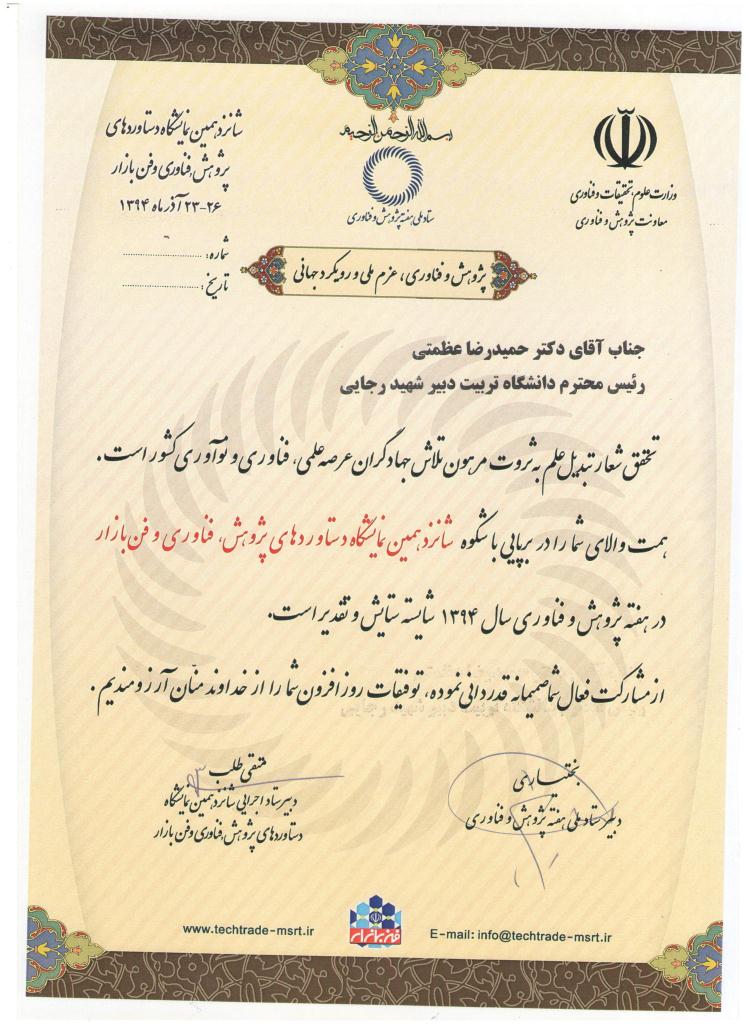 بسم الله الرحمن الرحیم
وزارت علوم، تحقیقات و فناوری
معاونت پژوهش و فناوری
ستاد ملی هفته پژوهش و فناوری
شانزدهمین نمایشگاه دستاوردهای
پژوهش، فناوری و فن بازار
۲۳-۲۶ آذر ماه ۱۳۹۴
شماره: ........................
تاریخ: ........................
پژوهش و فناوری، عزم ملی و رویکرد جهانی
جناب آقای دکتر حمیدرضا عظمتی
رئیس محترم دانشگاه تربیت دبیر شهید رجایی
تحقق شعار تبدیل علم به ثروت مرهون تلاش جهادگران عرصه علمی، فناوری و نوآوری کشور است.
همت والای شما را در برپایی با شکوه شانزدهمین نمایشگاه دستاوردهای پژوهش، فناوری و فن بازار
در هفته پژوهش و فناوری سال ۱۳۹۴ شایسته ستایش و تقدیر است.
از مشارکت فعال شما صمیمانه قدردانی نموده، توفیقات روزافزون شما را از خداوند منان آرزومندیم.
بختیاری
دبیر ستاد ملی هفته پژوهش و فناوری
متقی طلب
دبیر ستاد اجرایی شانزدهمین نمایشگاه
دستاوردهای پژوهش، فناوری و فن بازار
فن بازار
www.techtrade-msrt.ir
E-mail: info@techtrade-msrt.ir